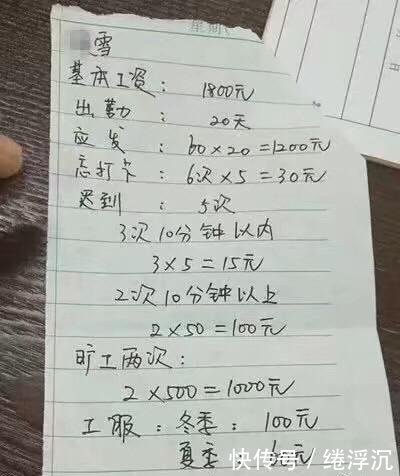 星期
雪
基本工资： 1800元
出勤： 20天
应发： 60×20=1200元
忘打卡： 6次×5=30元
迟到： 5次
3次10分钟以内
3×5=15元
2次10分钟以上
2×50=100元
旷工两次：
2×500=1000元
工服：冬季： 100元
夏季：
快传号 / 绻浮沉